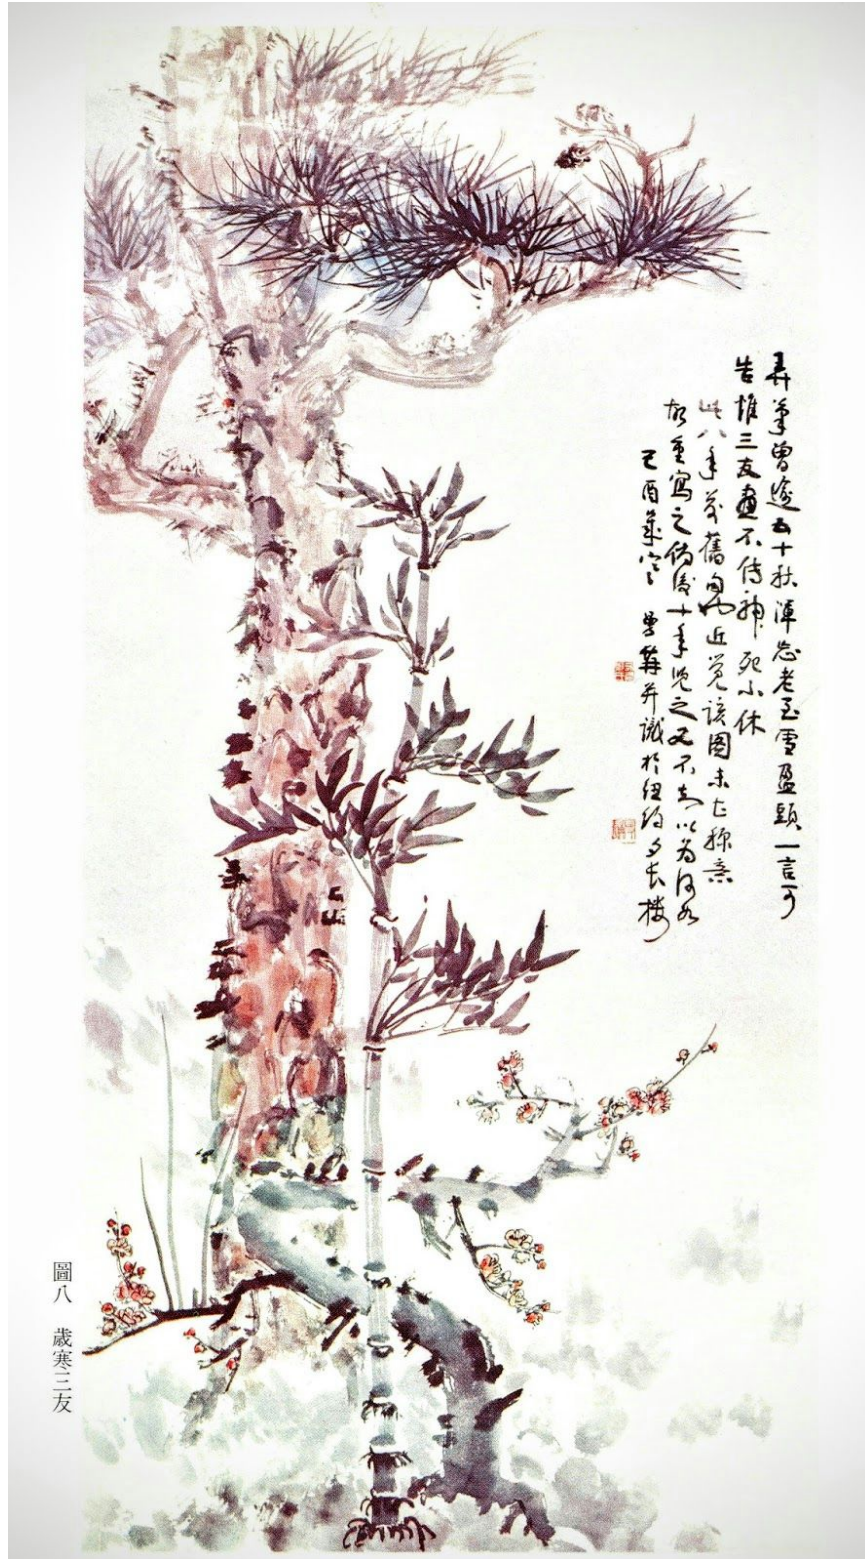 弄筆曾逾五十秋渾忘老至雪盈頭一言可
告惟三友畫不傳神死不休
此八年前舊句也近覺該圖未稱意
故重寫之倘後十年見之又不知以為何如
己酉歲寒 曾并識於紐約
圖八 歲寒三友